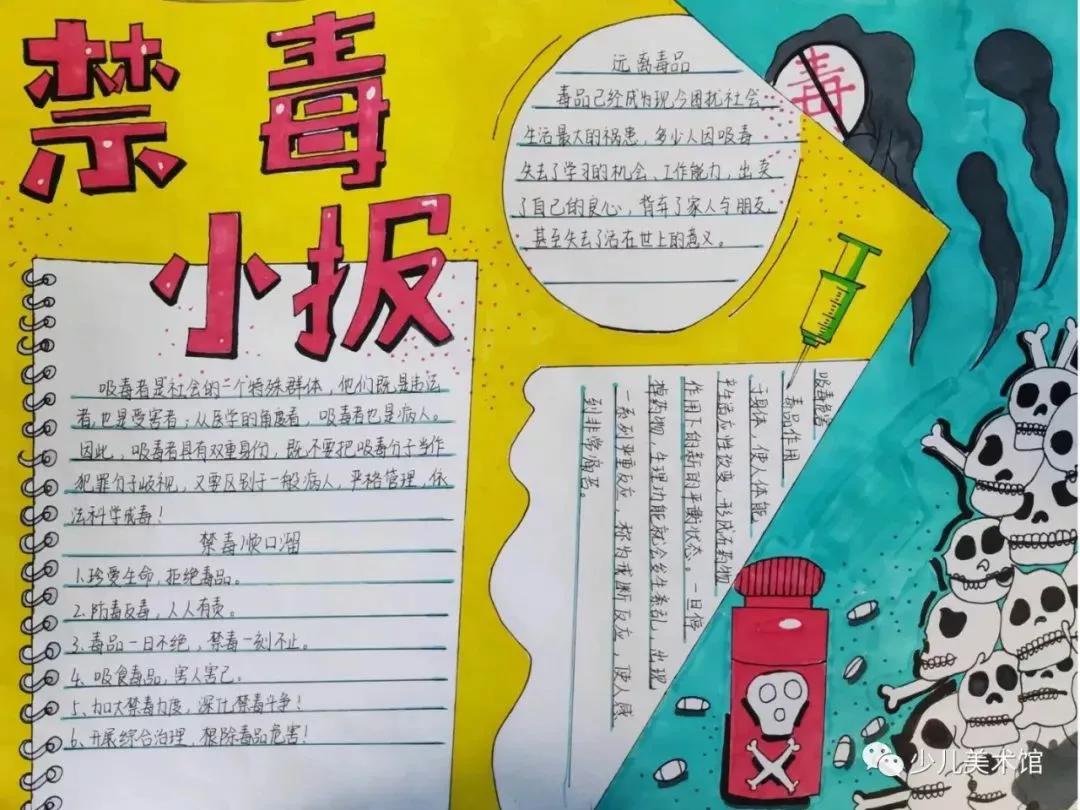 禁毒
小报
远离毒品
毒品已经成为现今困扰社会
生活最大的祸患，多少人因吸毒
失去了学习的机会、工作能力，出卖
了自己的良心，背弃了家人与朋友，
甚至失去了活在世上的意义。
毒
吸毒者是社会的一个特殊群体，他们既是违法
者，也是受害者；从医学的角度看，吸毒者也是病人。
因此，吸毒者具有双重身份，既不要把吸毒分子当作
犯罪分子歧视，又要区别于一般病人，严格管理，依
法科学戒毒！
禁毒顺口溜
1.珍爱生命，拒绝毒品。
2.防毒反毒，人人有责。
3.毒品一日不绝，禁毒一刻不止。
4、吸食毒品，害人害己。
5、加大禁毒力度，深化禁毒斗争！
6、开展综合治理，根除毒品危害！
吸毒危害
毒品作用
于身体，使人体能
产生适应性改变，形成在药物
作用下的新的平衡状态。一旦停
掉药物，生理功能就会发生紊乱，出现
一系列严重反应，称为戒断反应，使人感
到非常痛苦。
少儿美术馆